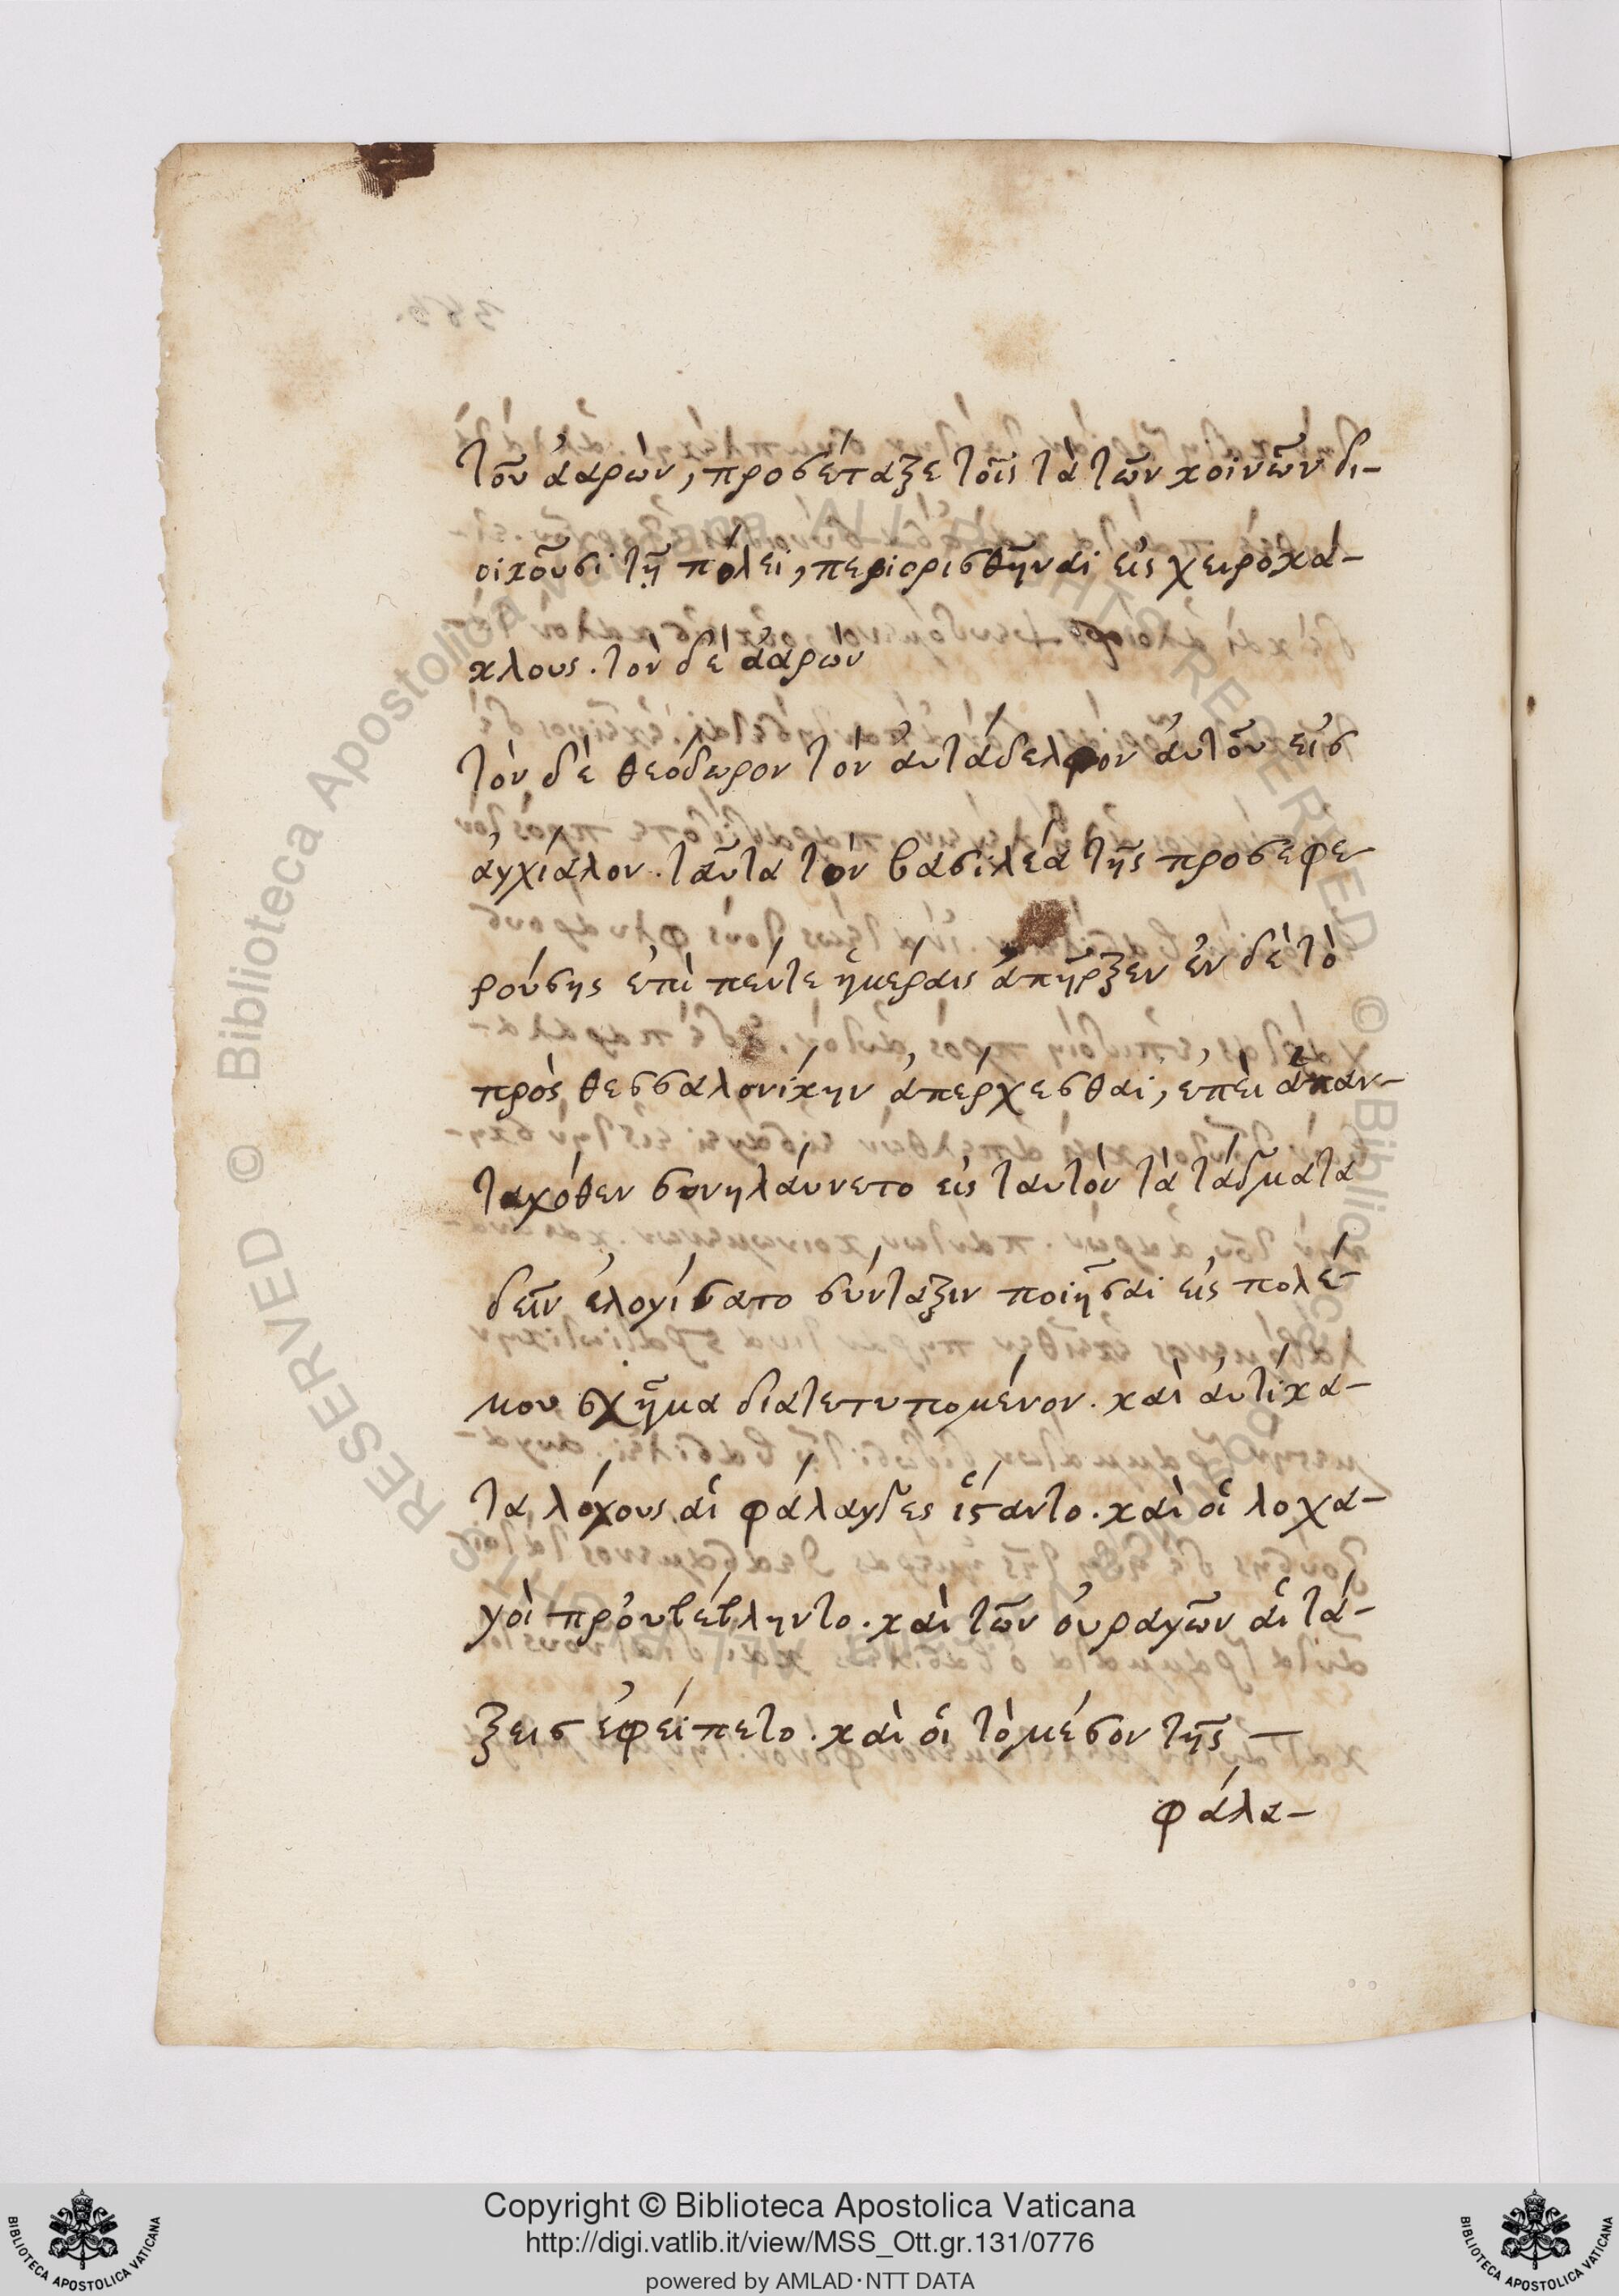 τοῦ ἀαρών, προσέταξε τοῖς τὰ τῶν κοινῶν δι-
οικοῦσι τῇ πόλει, περιορισθῆναι εἰς χειροκά-
κλους. τὸν δὲ ἀαρὼν
τὸν δὲ θεόδωρον τὸν ἀυτάδελφον ἀυτοῦ εἰσ
ἀγχίαλον. ταῦτα τὸν βασιλέα τῆς προσεφε
ρούσης ἐπὶ πέντε ἡμέραις ἀπῆρξεν ἐν δὲ τὸ
πρὸς θεσσαλονίκην ἀπέρχεσθαι, ἐπεὶ ἁπαν-
ταχόθεν συνηλάυνετο εἰς ταυτὸν τὰ τάγματα
δεῖν ἐλογίσατο σύνταξιν ποιῆσαι εἰς πολέ-
μου σχῆμα διατετυπομένον. καὶ ἀυτίκα-
τα λόχους αἱ φάλαγγες ἵσταντο. καὶ οἱ λοχα-
γοὶ προὐβέβληντο. καὶ τῶν ὀυραγῶν αἱ τά-
ξεισ ἐφείπετο. καὶ οἱ τὸ μέσον τῆς —
φάλα-
Copyright © Biblioteca Apostolica Vaticana
http://digi.vatlib.it/view/MSS_Ott.gr.131/0776
powered by AMLAD·NTT DATA